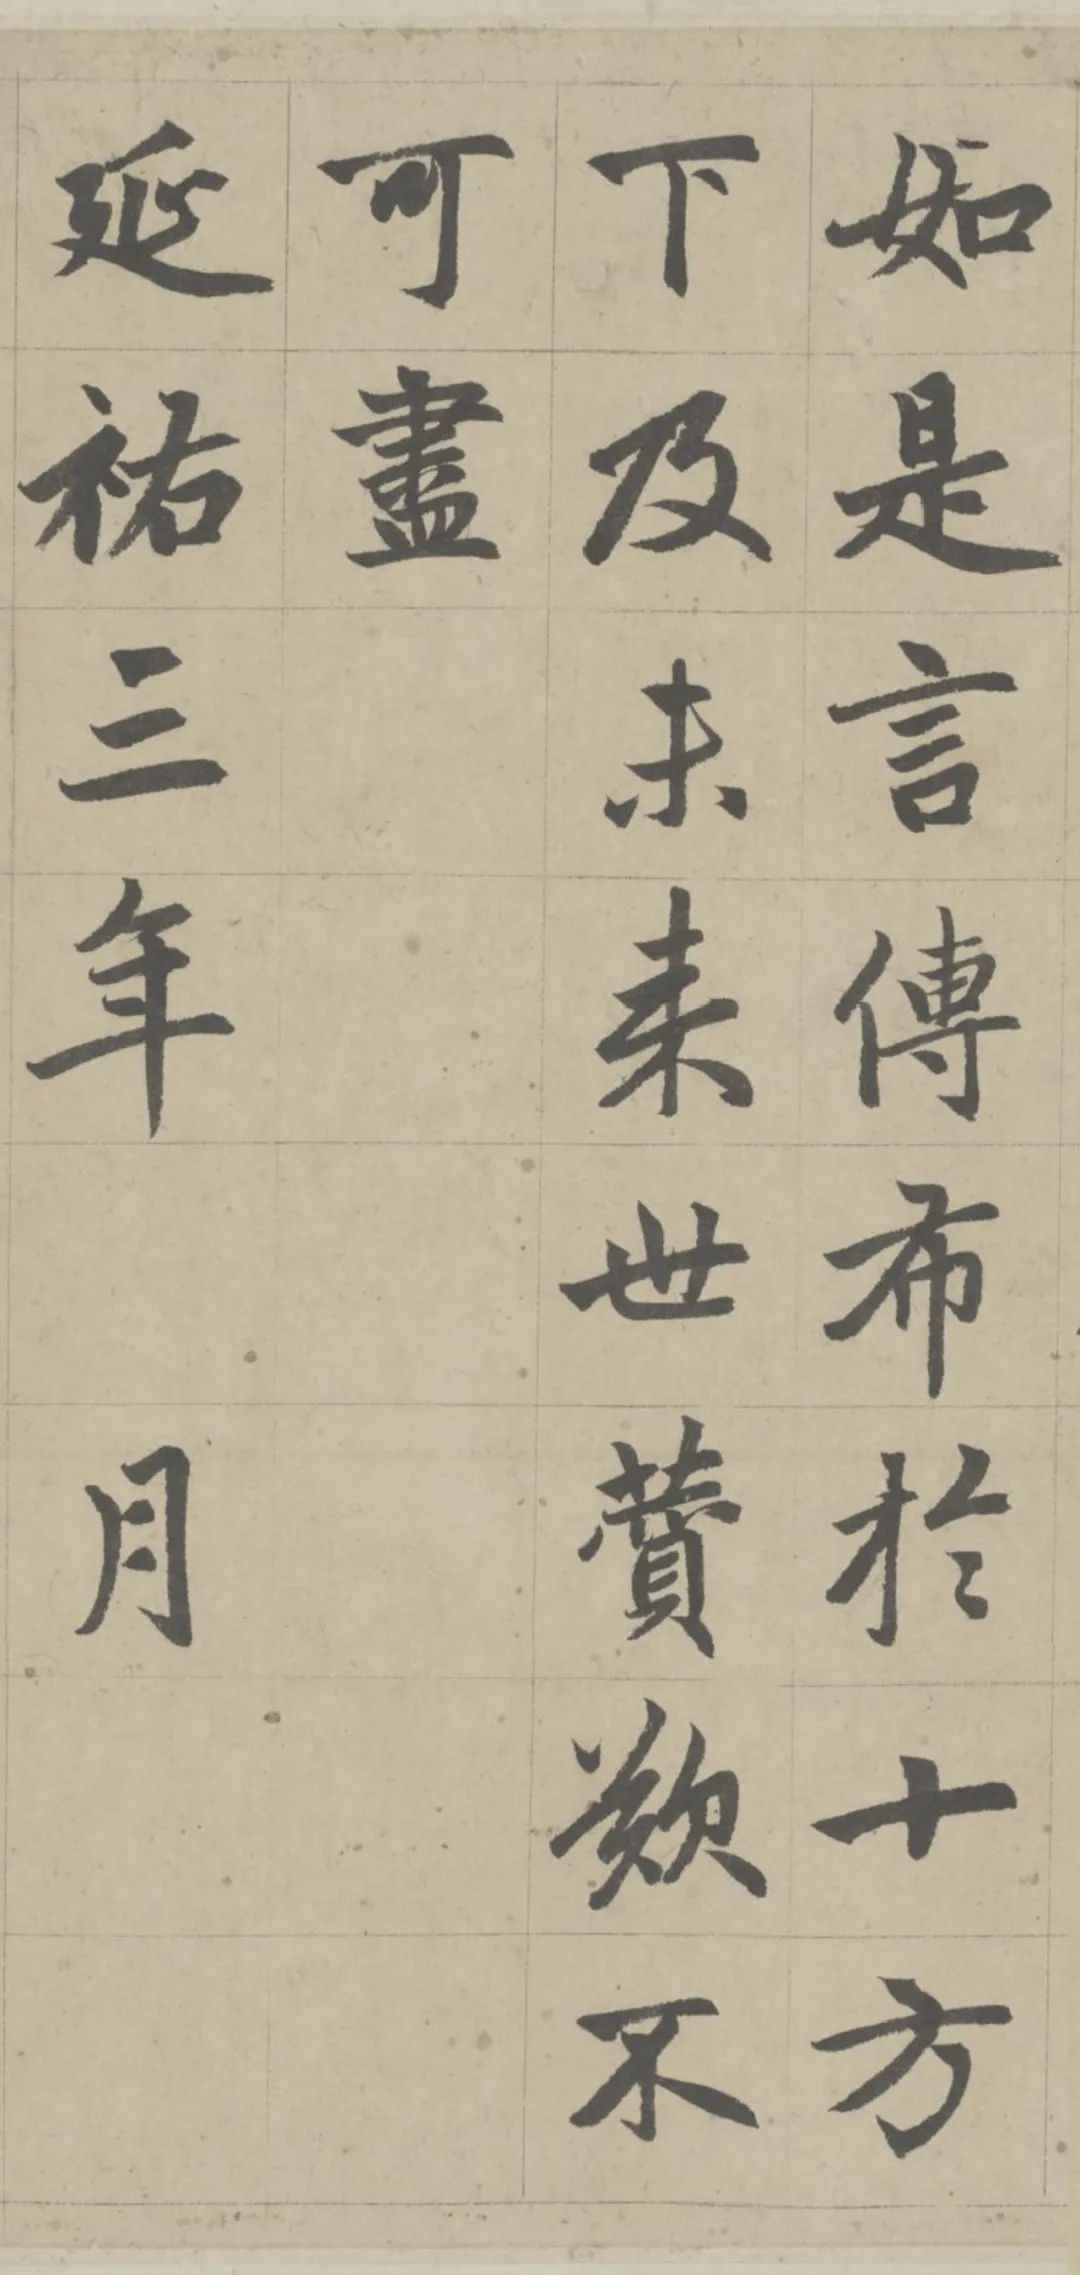 如是言傳布於十方
下及未来世賛歎不
可盡
延祐三年月